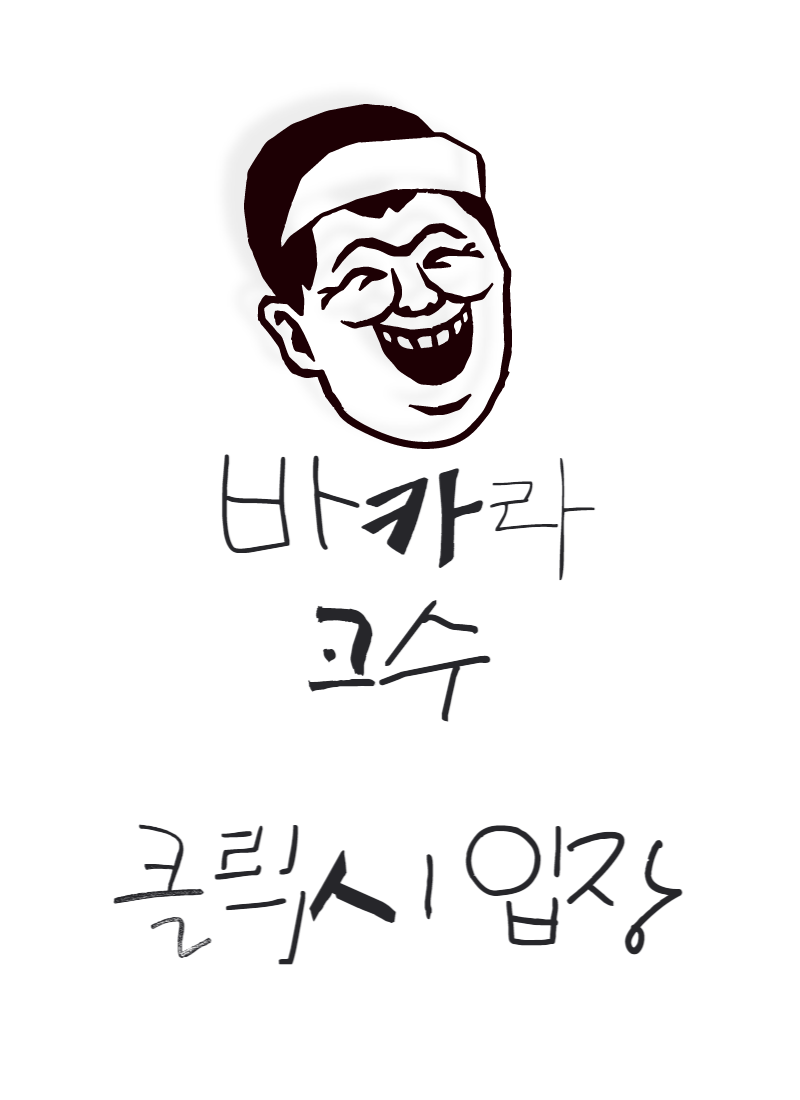 바카라
고수
클릭시 입장